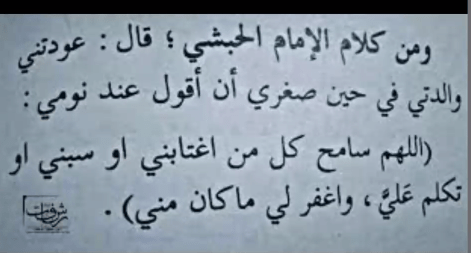 ومن كلام الإمام الحبشي ؛ قال : عودتني
والدتي في حين صغري أن أقول عند نومي :
(اللهم سامح كل من اغتابني او سبني او
تكلم عَليَّ ، واغفر لي ماكان مني) .